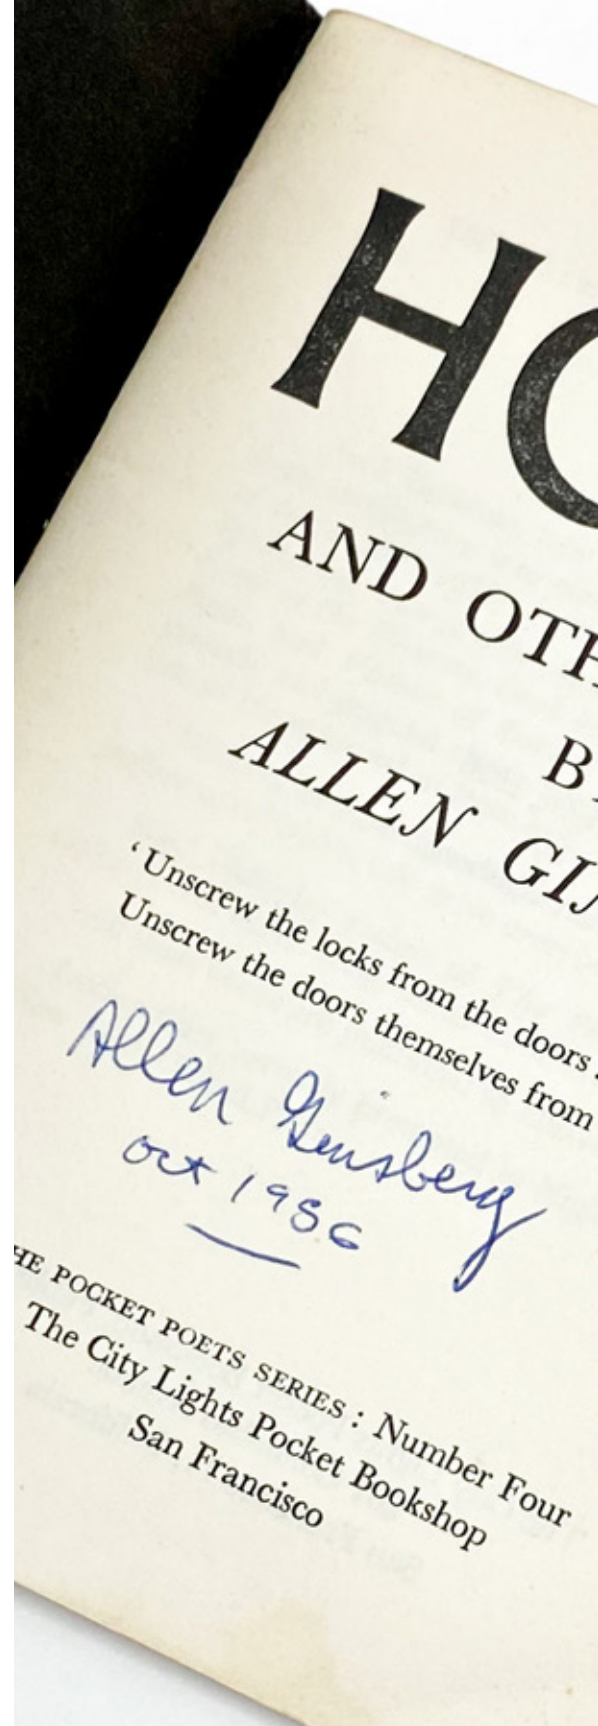 HO
AND OTH
B
ALLEN GI
‘Unscrew the locks from the doors !
Unscrew the doors themselves from
Allen Ginsberg
Oct 1956
THE POCKET POETS SERIES : Number Four
The City Lights Pocket Bookshop
San Francisco